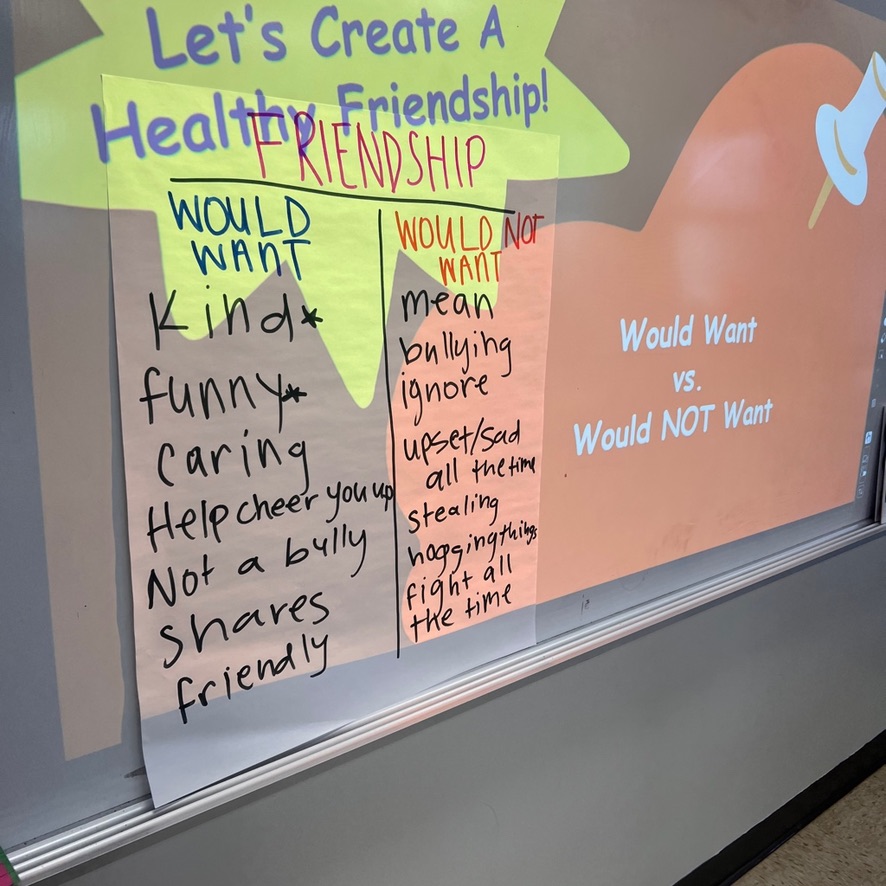 Let's Create A
Healthy Friendship!
FRIENDSHIP
WOULD
WANT
Kind*
funny*
Caring
Help cheer you up
Not a bully
Shares
friendly
WOULD NOT
WANT
mean
bullying
ignore
upset/sad
all the time
stealing
hogging things
fight all
the time
Would Want
vs.
Would NOT Want